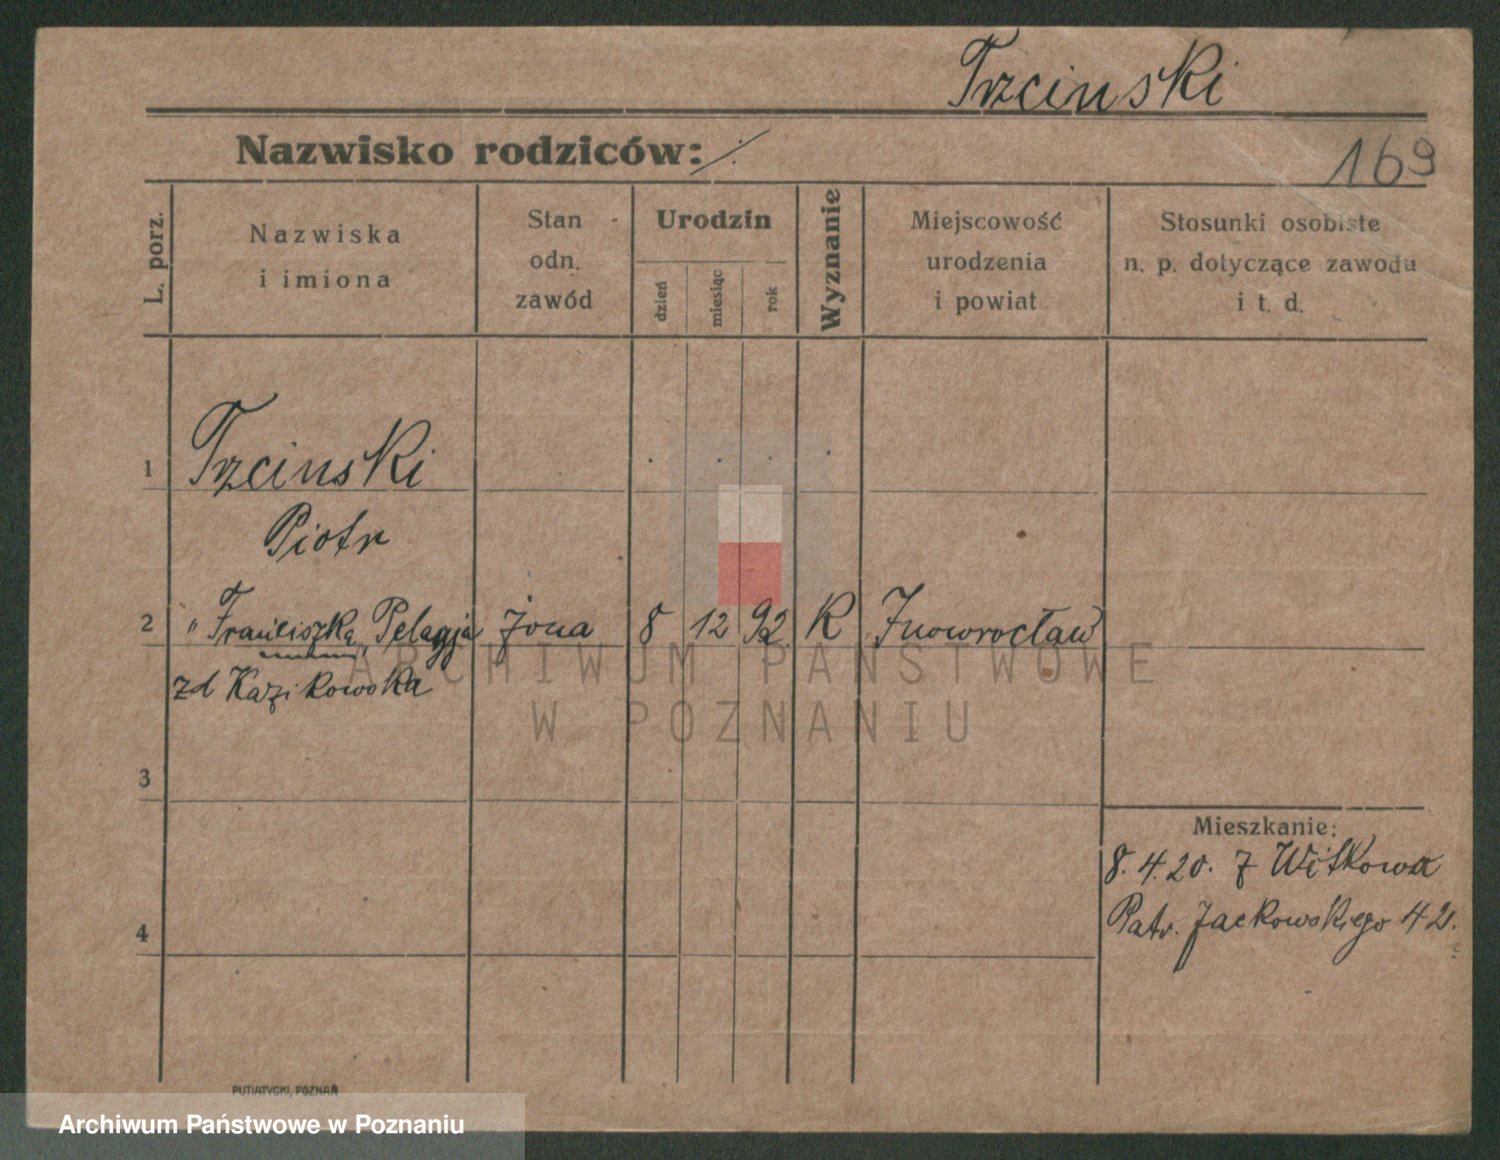 Trzcinski
Nazwisko rodziców: ./.
169
L. porz.
Nazwiska
i imiona
Stan
odn.
zawód
Urodzin
dzień
miesiąc
rok
Wyznanie
Miejscowość
urodzenia
i powiat
Stosunki osobiste
n. p. dotyczące zawodu
i t. d.
1 Trzcinski
Piotr
2 " Franciszka, Pelagja żona 8 12 92 K Inowrocław
zd Kazikowska
ARCHIWUM PAŃSTWOWE
W POZNANIU
3
Mieszkanie:
8.4.20. z Witkowa
Patr. Jackowskiego 42.
4
PUTIATYCKI, POZNAŃ
Archiwum Państwowe w Poznaniu